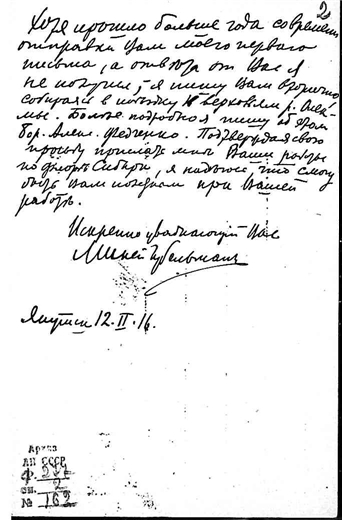 2
Хотя прошло больше года со времени
отправки Вам моего первого
письма, а ответа от Вас я
не получил, я пишу Вам вторично,
собираясь в поездку к верховьям р. Олек-
мы. Более подробно я пишу об этом
Бор. Алекс. Федченко. Подтверждая свою
просьбу прислать мне Ваши работы
по флоре Сибири, я надеюсь что смогу
быть Вам полезным при Вашей
работе.
Искренно уважающий Вас
Миней Губельман
Якутск 12.II.16.
Архив
АН СССР
Ф.
оп. 2
№ 163